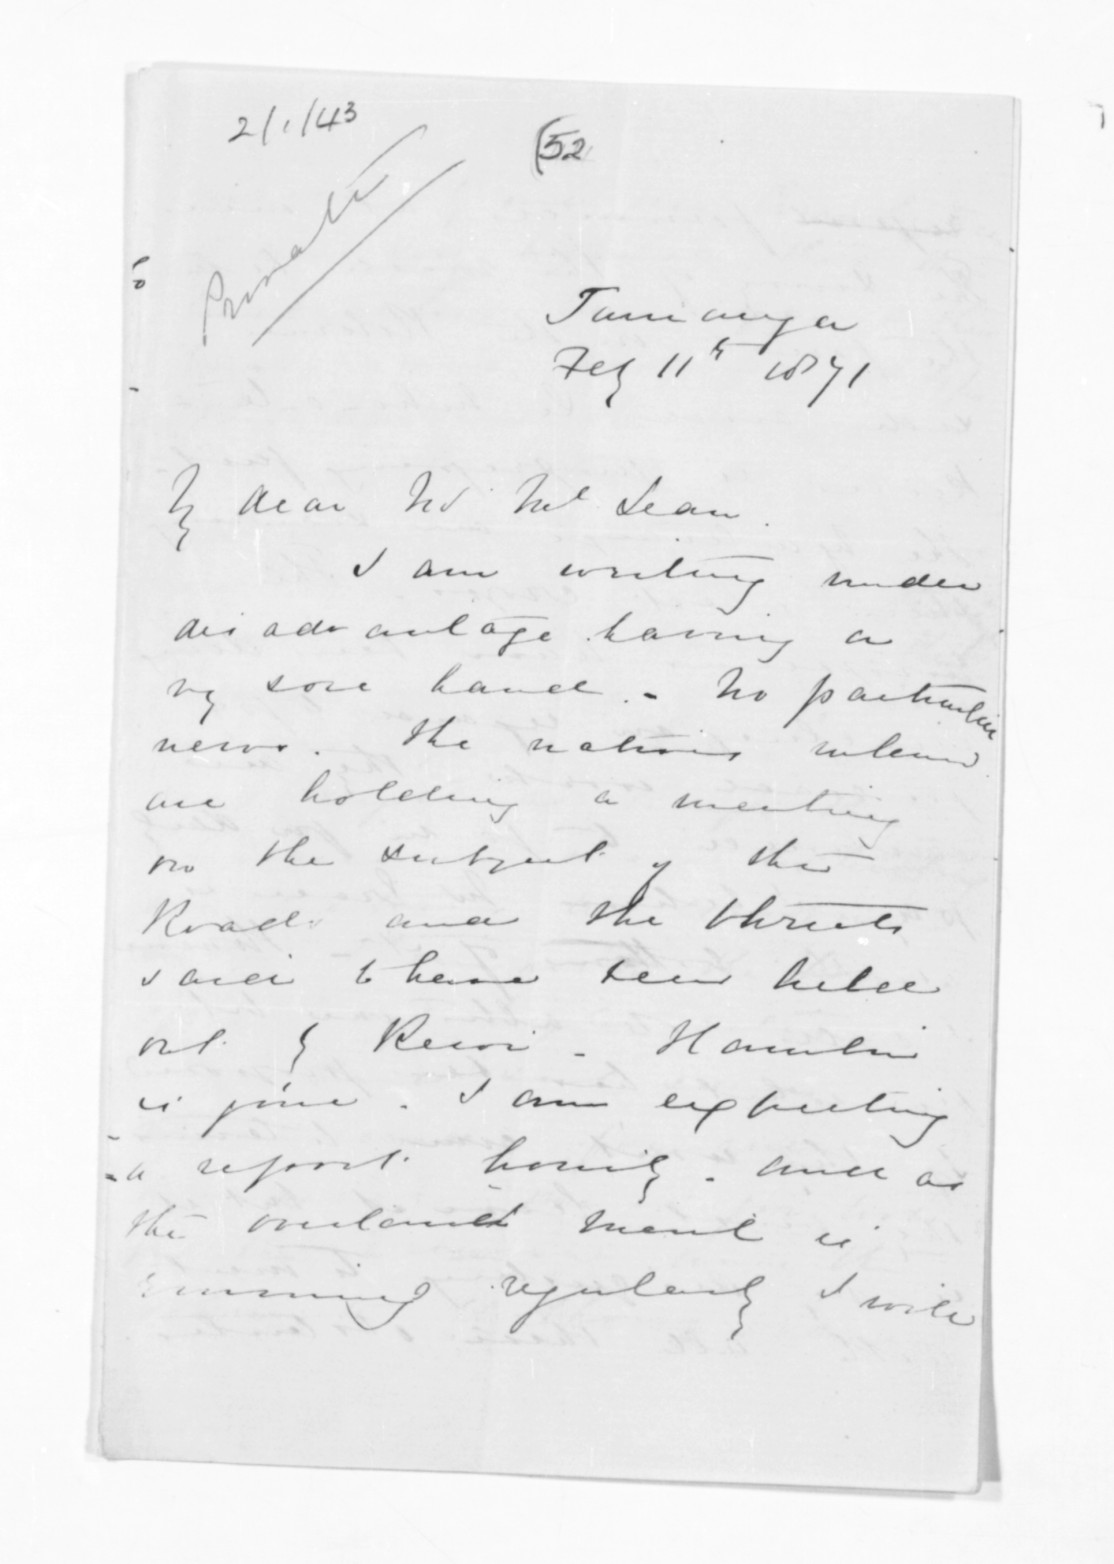 2/1/43
(52
Private
Tauranga
Feby 11th 1871
My dear Mr McLean.
I am writing under
disadvantage having a
vy sore hand - No particular
news. The natives inland
are holding a meeting
on the subject of the
Roads and the threats
said to have been held
out by Rewi - Hamlin
is gone. I am expecting
a report hourly. and as
the overland mail is
running regularly I will